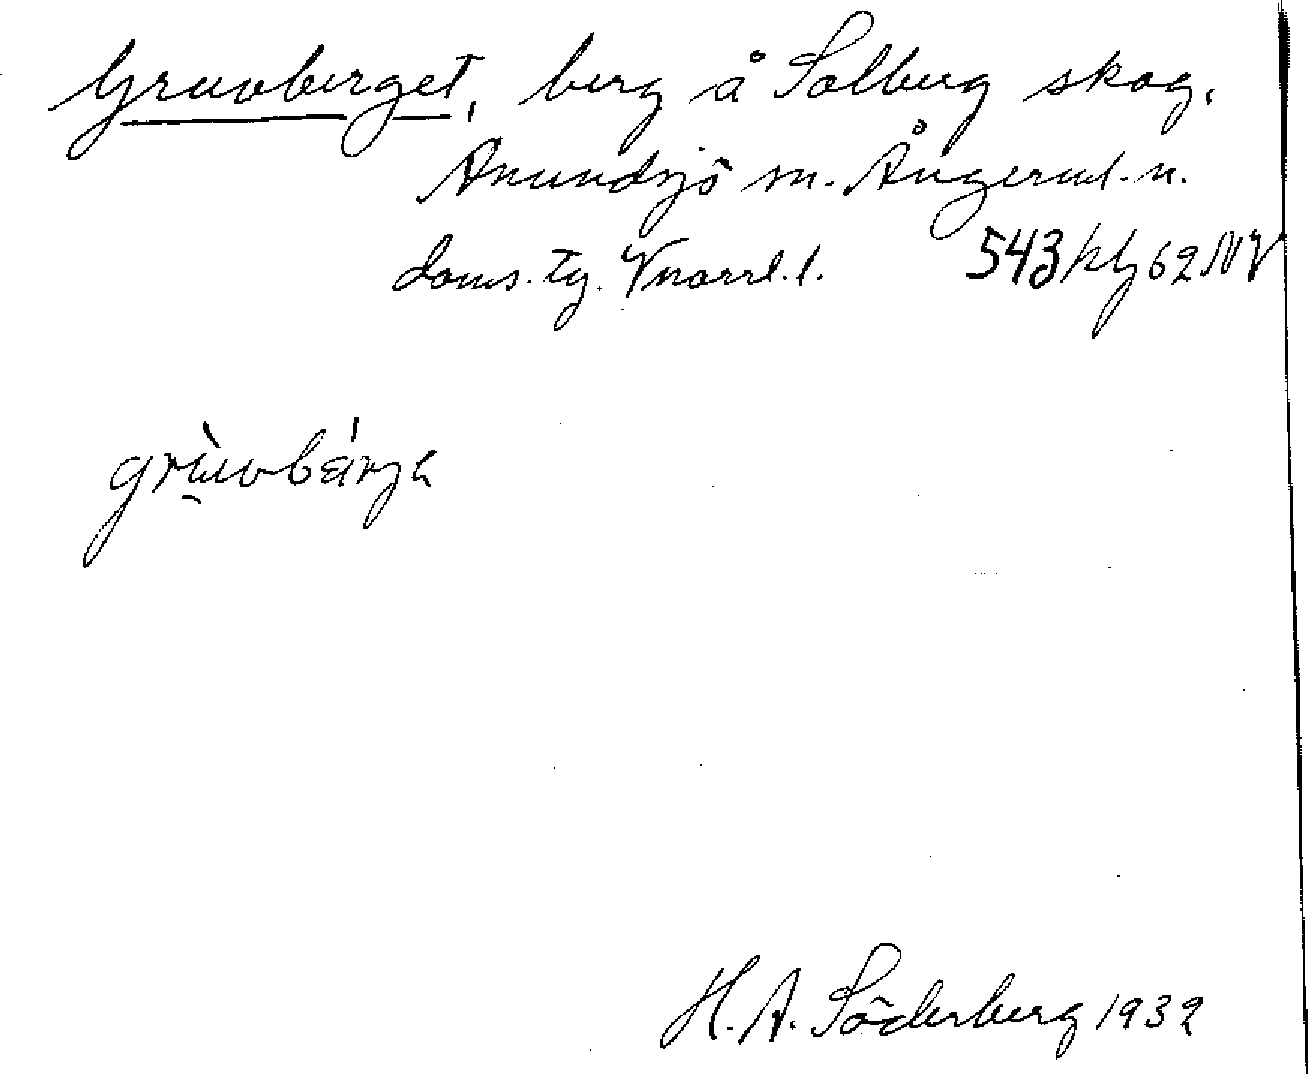 Gruvberget, berg å Solberg skog.
Anundsjö sn. Ångerml. n.
doms. tg. Vnorrl. l. 543
grùvbárja
H. A. Söderberg 1932